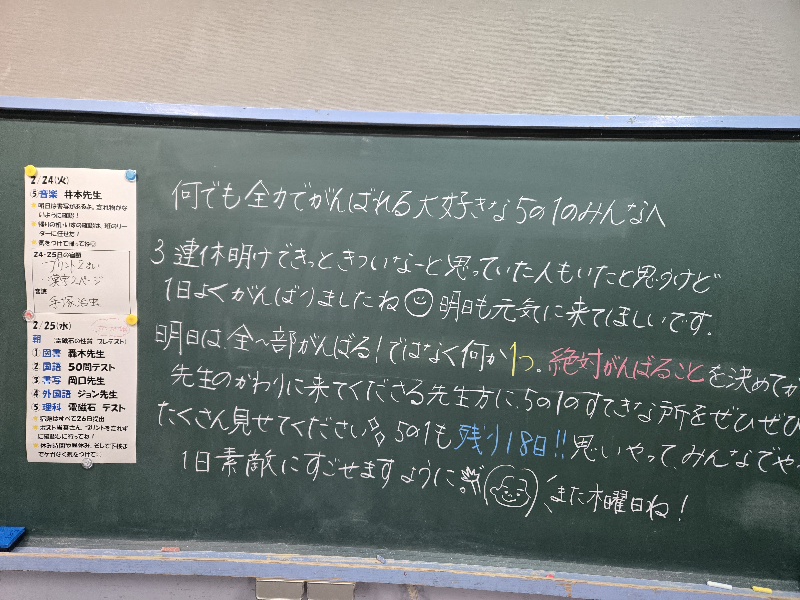 何でも全力でがんばれる大好きな5の1のみんなへ
3連休明けできっときついなーと思っていた人もいたと思うけど
1日よくがんばりましたね 明日も元気に来てほしいです。
明日は、全〜部がんばる!ではなく何か1つ。絶対がんばることを決めてか
先生のかわりに来てくださる先生方に、5の1のすてきな所をぜひぜひ
たくさん見せてください 5の1も残り18日!!思いやって、みんなでや
1日素敵にすごせますように また木曜日ね!
2/24(火)
⑤音楽 井本先生
24-25日の宿題
プリント2まい
漢字2ページ
音読
手塚治虫
2/25(水)
朝 (電磁石の性質 プレテスト)
①図書 轟木先生
②国語 50問テスト
③書写 岡口先生
④外国語 ジョン先生
⑤理科 電磁石 テスト